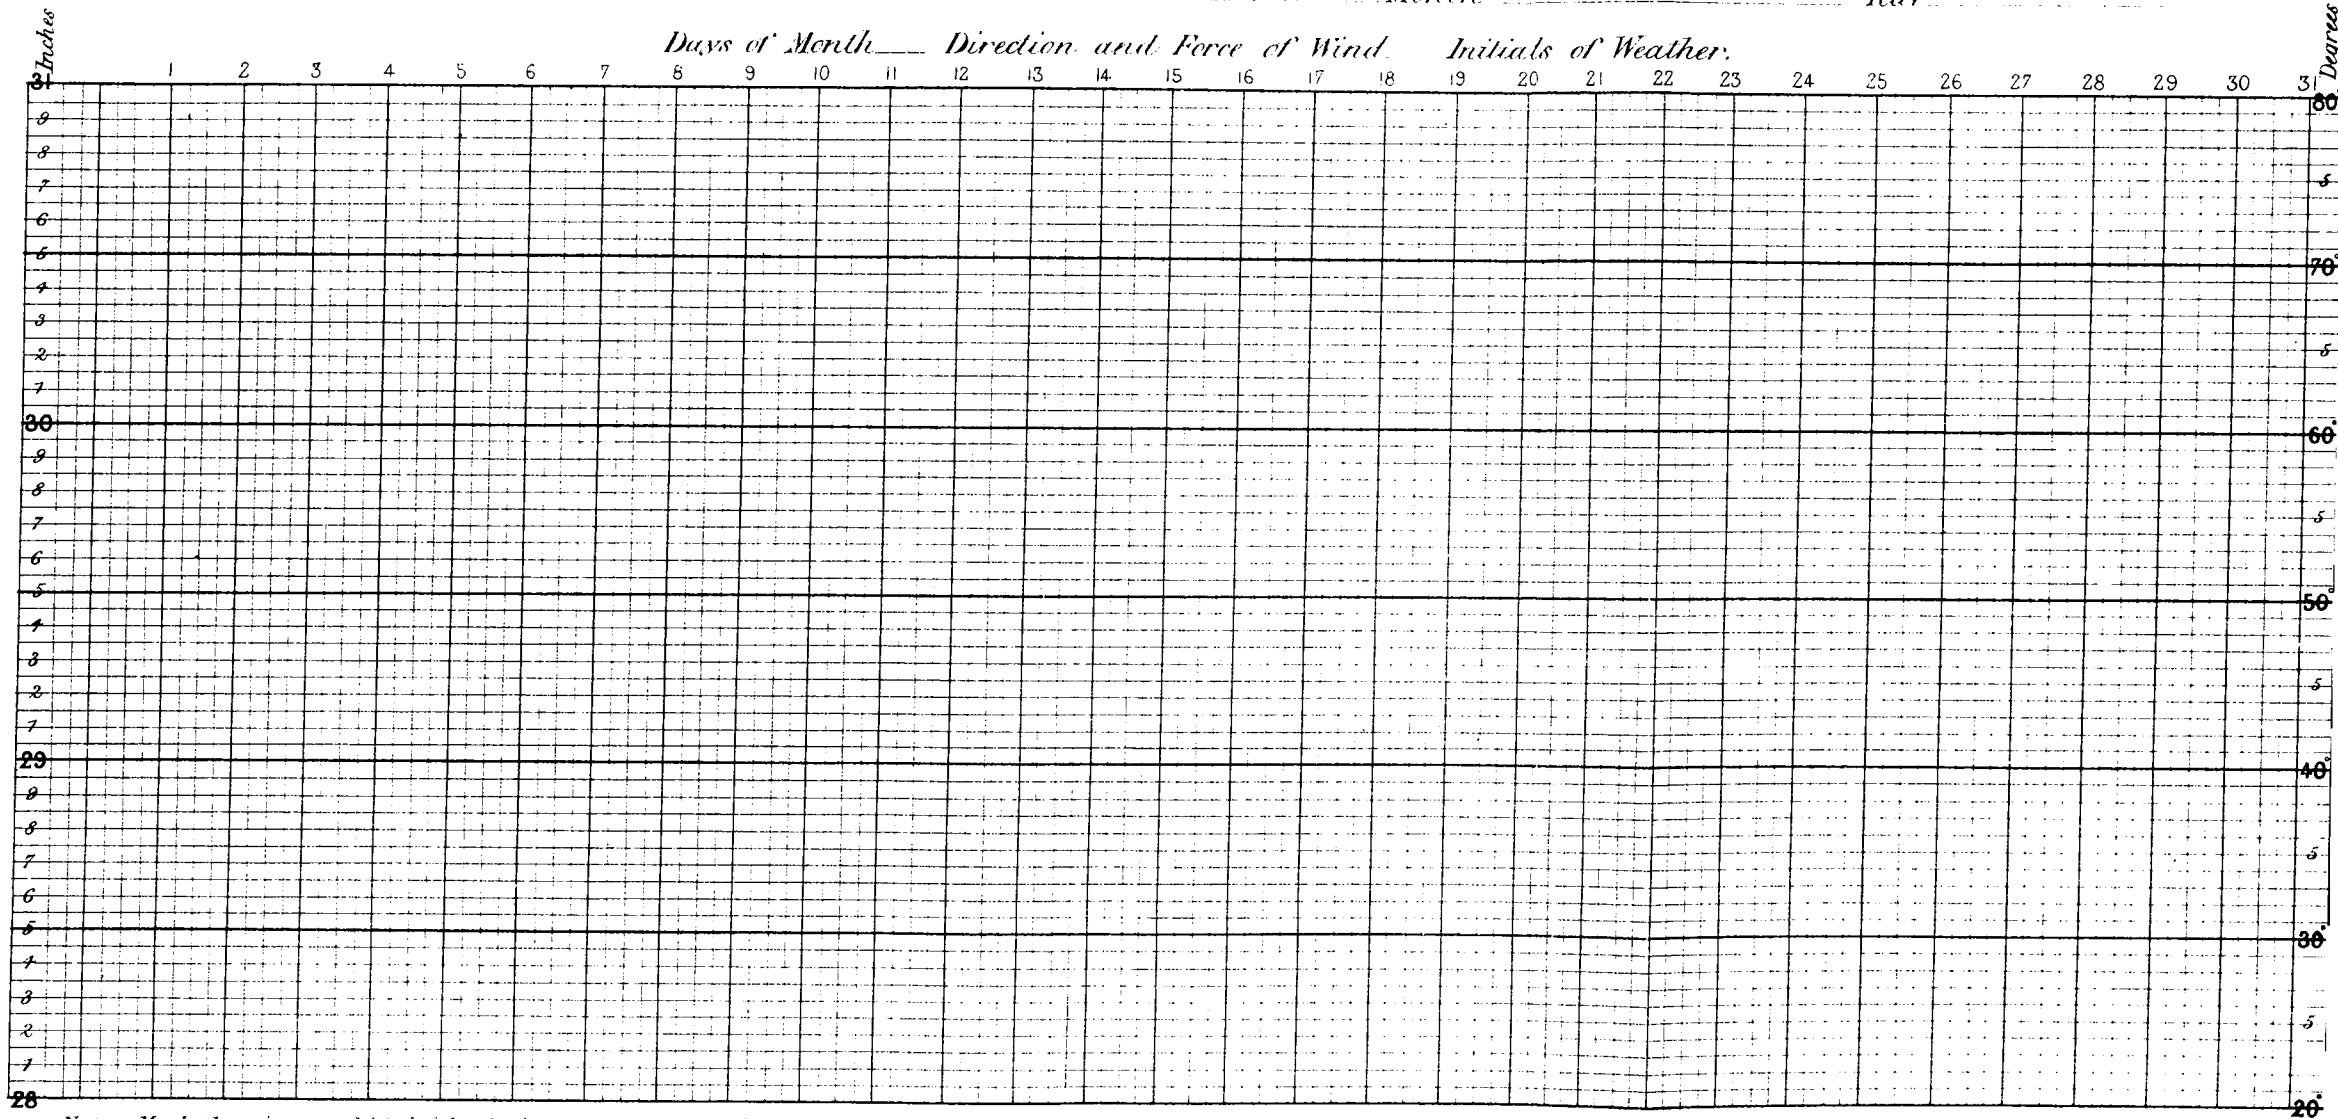 Inches
Days of Month Direction and Force of Wind. Initials of Weather.
Degrees
1 2 3 4 5 6 7 8 9 10 11 12 13 14 15 16 17 18 19 20 21 22 23 24 25 26 27 28 29 30 31
31
80°
9
8
7
5
6
5
70°
4
3
2
5
1
30
60°
9
8
7
5
6
5
50°
4
3
2
5
1
29
40°
9
8
7
5
6
5
30°
4
3
2
5
1
28
20°